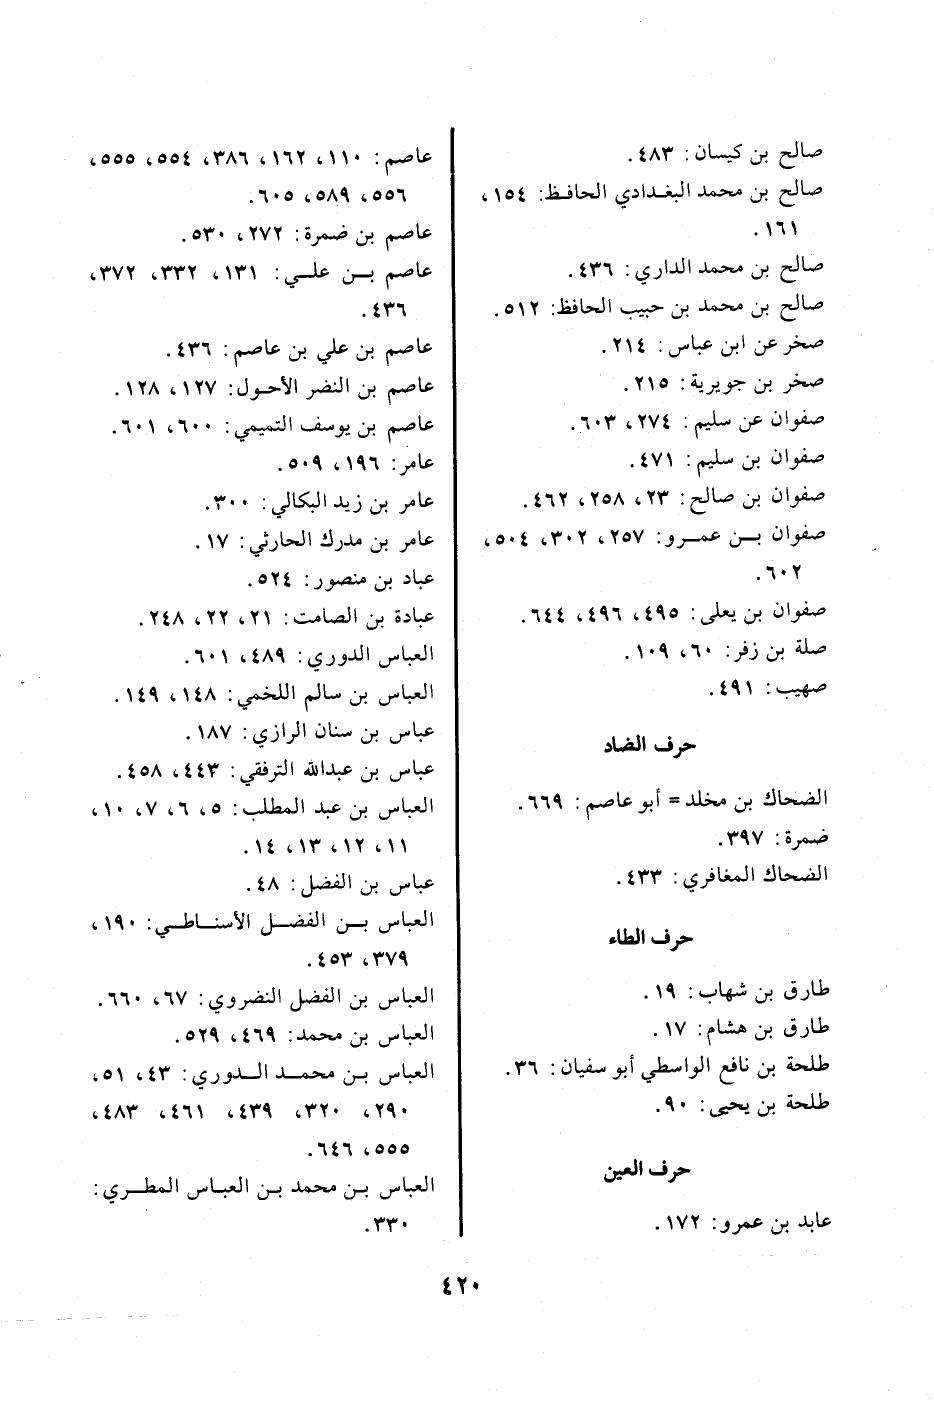 صالح بن كيسان: ٤٨٣.
صالح بن محمد البغدادي الحافظ: ١٥٤،
١٦١.
صالح بن محمد الداري: ٤٣٦.
صالح بن محمد بن حبيب الحافظ: ٥١٢.
صخر عن ابن عباس: ٢١٤.
صخر بن جويرية: ٢١٥.
صفوان عن سليم: ٢٧٤، ٦٠٣.
صفوان بن سليم: ٤٧١.
صفوان بن صالح: ٢٣، ٢٥٨، ٤٦٢.
صفوان بن عمرو: ٢٥٧، ٣٠٢، ٥٠٤،
٦٠٢.
صفوان بن يعلى: ٤٩٥، ٤٩٦، ٦٤٤.
صلة بن زفر: ٦٠، ١٠٩.
صهيب: ٤٩١.
حرف الضاد
الضحاك بن مخلد = أبو عاصم: ٦٦٩.
ضمرة: ٣٩٧.
الضحاك المغافري: ٤٣٣.
حرف الطاء
طارق بن شهاب: ١٩.
طارق بن هشام: ١٧.
طلحة بن نافع الواسطي أبو سفيان: ٣٦.
طلحة بن يحيى: ٩٠.
حرف العين
عابد بن عمرو: ١٧٢.
عاصم: ١١٠، ١٦٢، ٣٨٦، ٥٥٤، ٥٥٥،
٥٥٦، ٥٨٩، ٦٠٥.
عاصم بن ضمرة: ٢٧٢، ٥٣٠.
عاصم بن علي: ١٣١، ٣٣٢، ٣٧٢،
٤٣٦.
عاصم بن علي بن عاصم: ٤٣٦.
عاصم بن النضر الأحول: ١٢٧، ١٢٨.
عاصم بن يوسف التميمي: ٦٠٠، ٦٠١.
عامر: ١٩٦، ٥٠٩.
عامر بن زيد البكالي: ٣٠٠.
عامر بن مدرك الحارثي: ١٧.
عباد بن منصور: ٥٢٤.
عبادة بن الصامت: ٢١، ٢٢، ٢٤٨.
العباس الدوري: ٤٨٩، ٦٠١.
العباس بن سالم اللخمي: ١٤٨، ١٤٩.
عباس بن سنان الرازي: ١٨٧.
عباس بن عبدالله الترفقي: ٤٤٣، ٤٥٨.
العباس بن عبد المطلب: ٥، ٦، ٧، ١٠،
١١، ١٢، ١٣، ١٤.
عباس بن الفضل: ٤٨.
العباس بن الفضل الأسناطي: ١٩٠،
٣٧٩، ٤٥٣.
العباس بن الفضل النضروي: ٦٧، ٦٦٠.
العباس بن محمد: ٤٦٩، ٥٢٩.
العباس بن محمد الدوري: ٤٣، ٥١،
٢٩٠، ٣٢٠، ٤٣٩، ٤٦١، ٤٨٣،
٥٥٥، ٦٤٦.
العباس بن محمد بن العباس المطري:
٣٣٠.
٤٢٠